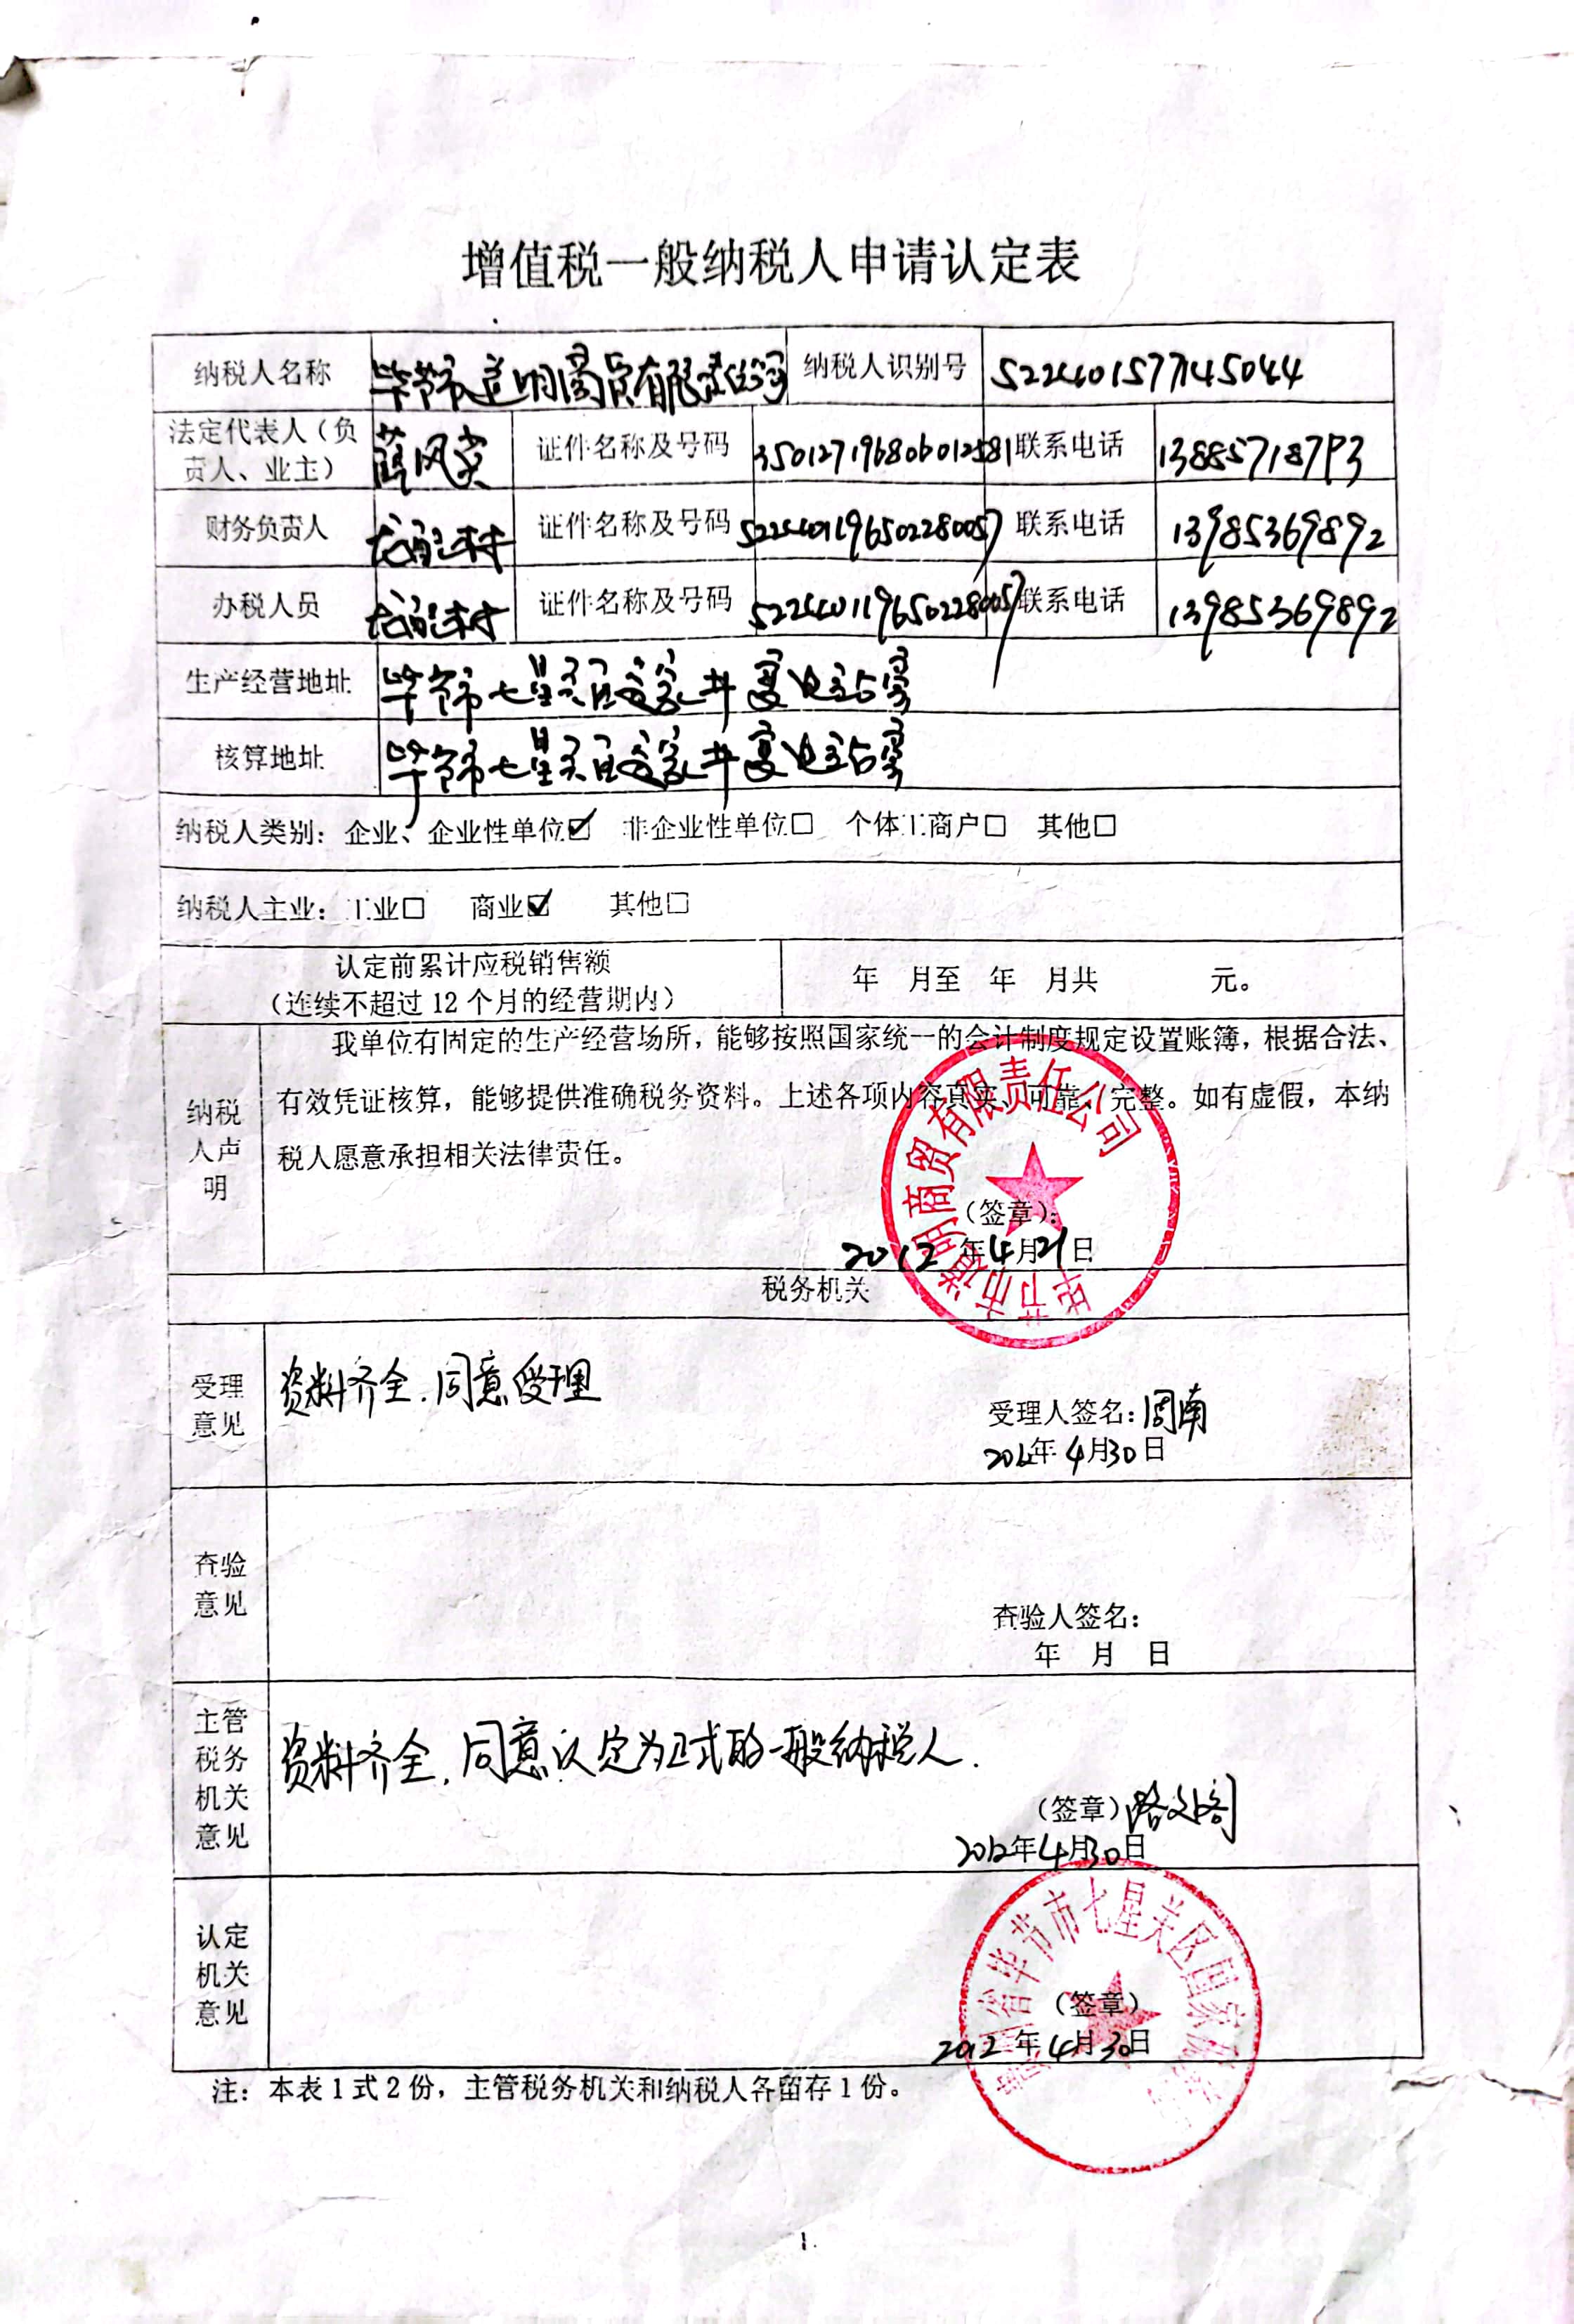 增值税一般纳税人申请认定表
纳税人名称 毕节市道明商贸有限责任公司 纳税人识别号 522401577145044
法定代表人（负责人、业主） 薛风 证件名称及号码 350127196806012581 联系电话 13885718793
财务负责人 证件名称及号码 522401196502280057 联系电话 13985369892
办税人员 证件名称及号码 522401196502280057 联系电话 13985369892
生产经营地址 毕节市七星关区 家井变电站旁
核算地址 毕节市七星关区 家井变电站旁
纳税人类别：企业、企业性单位☑ 非企业性单位□ 个体工商户□ 其他□
纳税人主业：工业□ 商业☑ 其他□
认定前累计应税销售额
（连续不超过 12 个月的经营期内） 年 月至 年 月共 元。
纳税人声明
我单位有固定的生产经营场所，能够按照国家统一的会计制度规定设置账簿，根据合法、
有效凭证核算，能够提供准确税务资料。上述各项内容真实、可靠、完整。如有虚假，本纳
税人愿意承担相关法律责任。
（签章）：
2012 年 4 月 21 日
毕节市道明商贸有限责任公司
税务机关
受理意见 资料齐全.同意受理
受理人签名：周南
2012年 4月30日
查验意见
查验人签名：
年 月 日
主管税务机关意见 资料齐全.同意认定为正式的一般纳税人.
（签章）
2012年4月30日
认定机关意见
（签章）
2012 年 4 月 30 日
贵州省毕节市七星关区国家税务局
注：本表 1 式 2 份，主管税务机关和纳税人各留存 1 份。
1